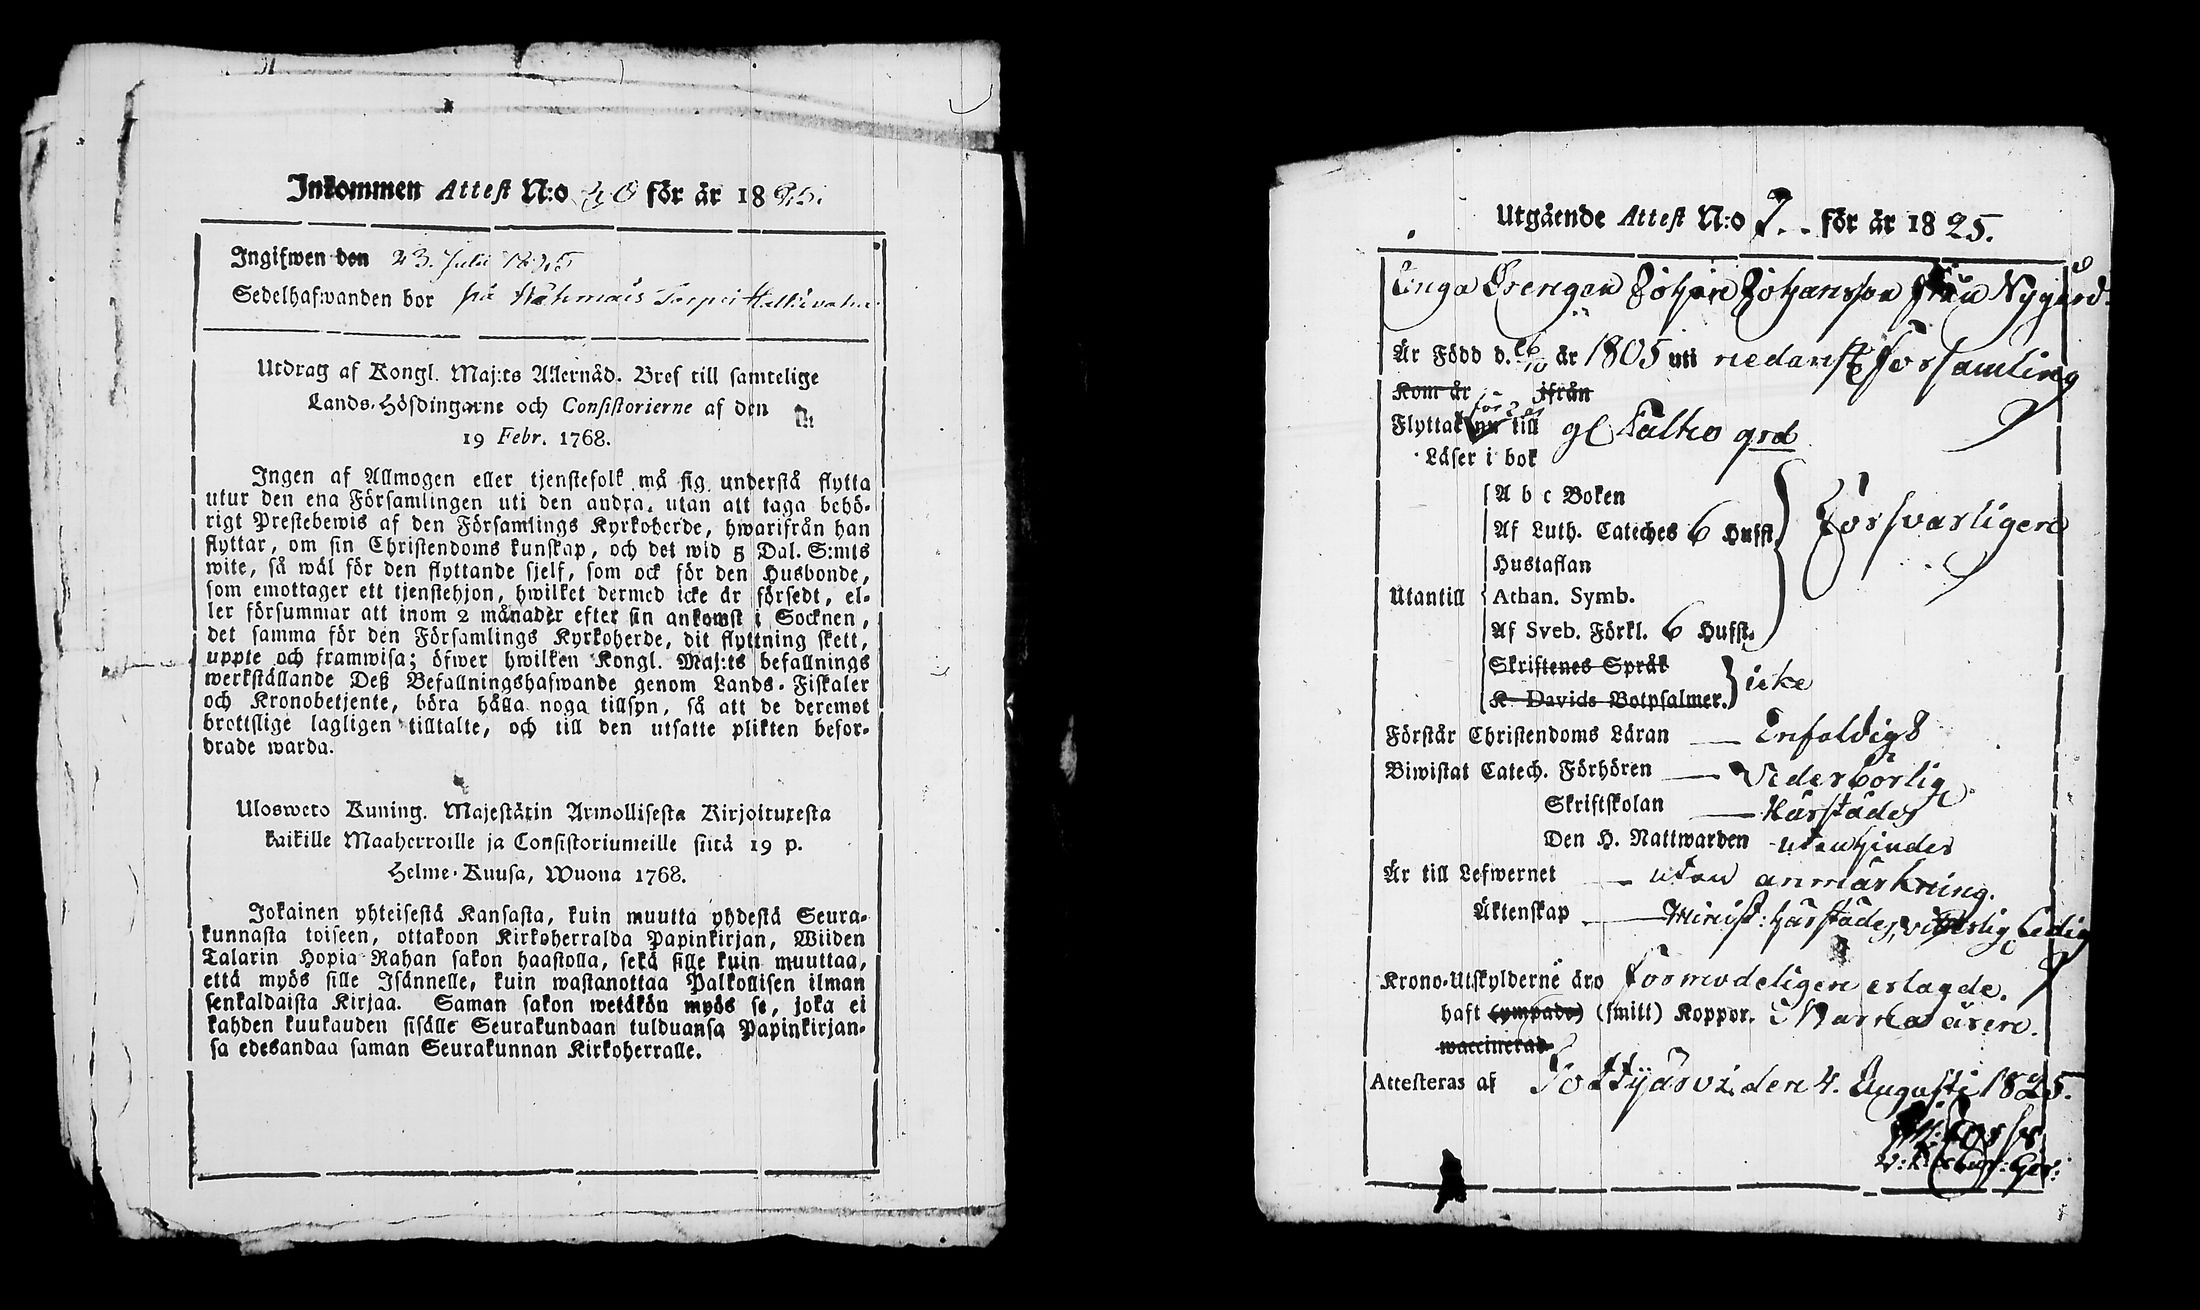 Inkommen Attest N:o 40 för år 1825.
Ingifwen den 23. Julii 1825
Sedelhafwanden bor på
Utdrag af Kongl. Maj:ts Allernåd. Bref till samtelige
Lands-Höfdingarne och Consistorierne af den
19 Febr. 1768.
Ingen af Allmogen eller tjenstefolk må sig understå flytta
utur den ena Församlingen uti den andra, utan att taga behö-
rigt Prestebewis af den Församlings Kyrkoherde, hwarifrån han
flyttar, om sin Christendoms kunskap, och det wid 5 Dal. S:mts
wite, så wäl för den flyttande sjelf, som ock för den Husbonde,
som emottager ett tjenstehjon, hwilket dermed icke är försedt, el-
ler försummar att inom 2 månader efter sin ankomst i Socknen,
det samma för den Församlings Kyrkoherde, dit flyttning skett,
uppte och framwisa; öfwer hwilken Kongl. Maj:ts befallnings
werkställande Deß Befallningshafwande genom Lands-Fiskaler
och Kronobetjente, böra hålla noga tillsyn, så att de deremot
brottslige lagligen tilltalte, och till den utsatte plikten befor-
drade warda.
Ulosweto Kuning. Majestätin Armollisesta Kirjoituxesta
kaikille Maaherroille ja Consistoriumeille siitä 19 p.
Helme-Kuusa, Wuona 1768.
Jokainen yhteisestä Kansasta, kuin muutta yhdestä Seura-
kunnasta toiseen, ottakoon Kirkoherralda Papinkirjan, Wiiden
Talarin Hopia Rahan sakon haastolla, sekä sille kuin muuttaa,
että myös sille Isännelle, kuin wastanottaa Palkollisen ilman
senkaldaista Kirjaa. Saman sakon wetäkön myös se, joka ei
kahden kuukauden sisälle Seurakundaan tulduansa Papinkirjan-
sa edesandaa saman Seurakunnan Kirkoherralle.
Utgående Attest N:o 7. för år 1825.
Unga Drengen Johan Johansson från Nygård
Är Född d. 26/10 år 1805 uti nedanst församling
Kom år ifrån
Flyttat nu till gl Kalko grd
Läser i bok
A b c Boken
Af Luth. Cateches 6 Hufst. Försvarligen
Hustaflan
Utantill Athan. Symb.
Af Sveb. Förkl. 6 Hufst.
Skriftenes Språk
K. Davids Botpsalmer. icke
Förstår Christendoms Läran Enfaldigt
Biwistat Catech. Förhören Vederbörlig
Skriftskolan Härstädes
Den H. Nattwarden utan hinder
Är till Lefwernet utan anmärkning.
Äktenskap Minist: härstädes, ledig
Krono-Utskylderne äro förmodeligen erlagde.
haft (ympade) (smitt) Koppor. i Barna åren.
waccinerad
Attesteras af Pottjärvi den 4. Augusti 1825.